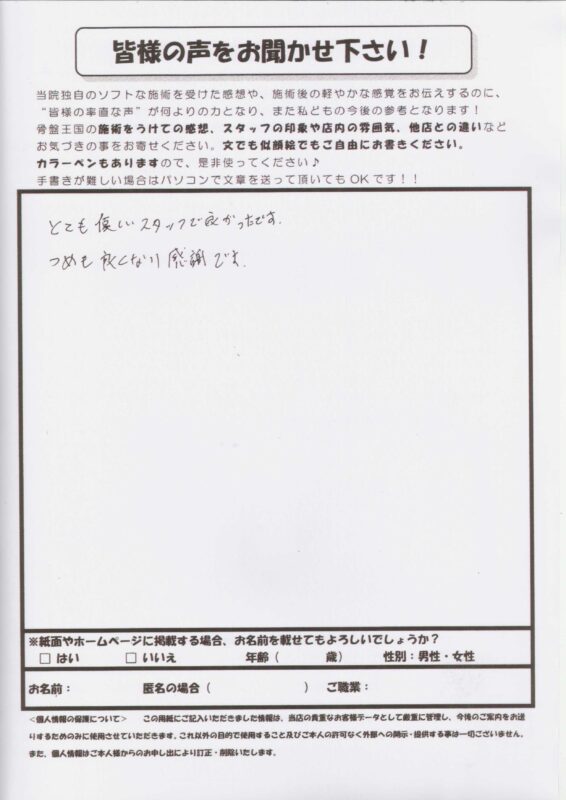 皆様の声をお聞かせ下さい！
当院独自のソフトな施術を受けた感想や、施術後の軽やかな感覚をお伝えするのに、
“皆様の率直な声”が何よりの力となり、また私どもの今後の参考となります！
骨盤王国の施術をうけての感想、スタッフの印象や店内の雰囲気、他店との違いなど
お気づきの事をお寄せください。文でも似顔絵でもご自由にお書きください。
カラーペンもありますので、是非使ってください♪
手書きが難しい場合はパソコンで文章を送って頂いてもOKです！！
とても優しいスタッフで良かったです.
つめも良くなり感謝です.
※紙面やホームページに掲載する場合、お名前を載せてもよろしいでしょうか？
□ はい □ いいえ 年齢（ 歳） 性別：男性・女性
お名前： 匿名の場合（ ） ご職業：
＜個人情報の保護について＞ この用紙にご記入いただきました情報は、当店の貴重なお客様データとして厳重に管理し、今後のご案内をお送
りするためのみに使用させていただきます。これ以外の目的で使用すること及びご本人の許可なく外部への開示・提供する事は一切ございません。
また、個人情報はご本人様からのお申し出により訂正・削除いたします。